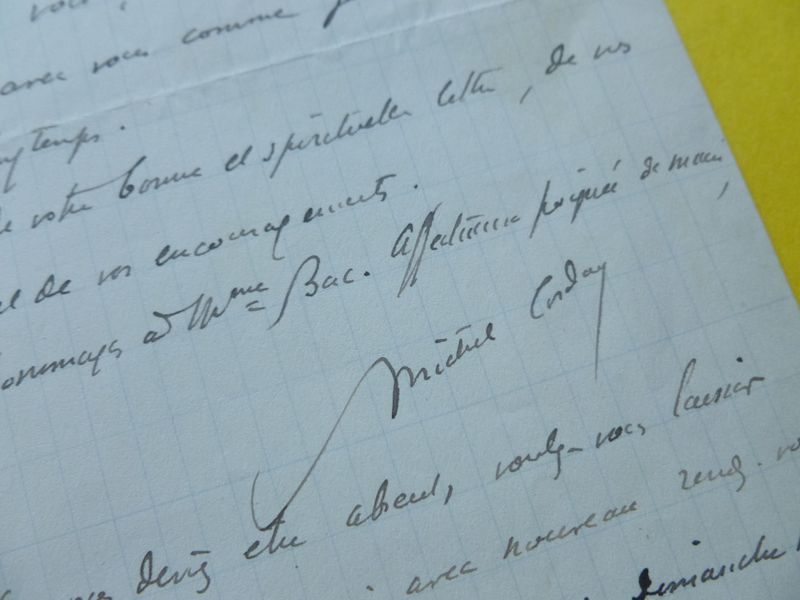 avec vous comme
de votre bonne et spirituelle lettre, de vos
et de vos encouragements.
hommages à Mme Bac. Affectueuse poignée de main,
Michel Corday
devez être absent, voulez-vous laisser
avec nouveau rendez-vo
dimanche